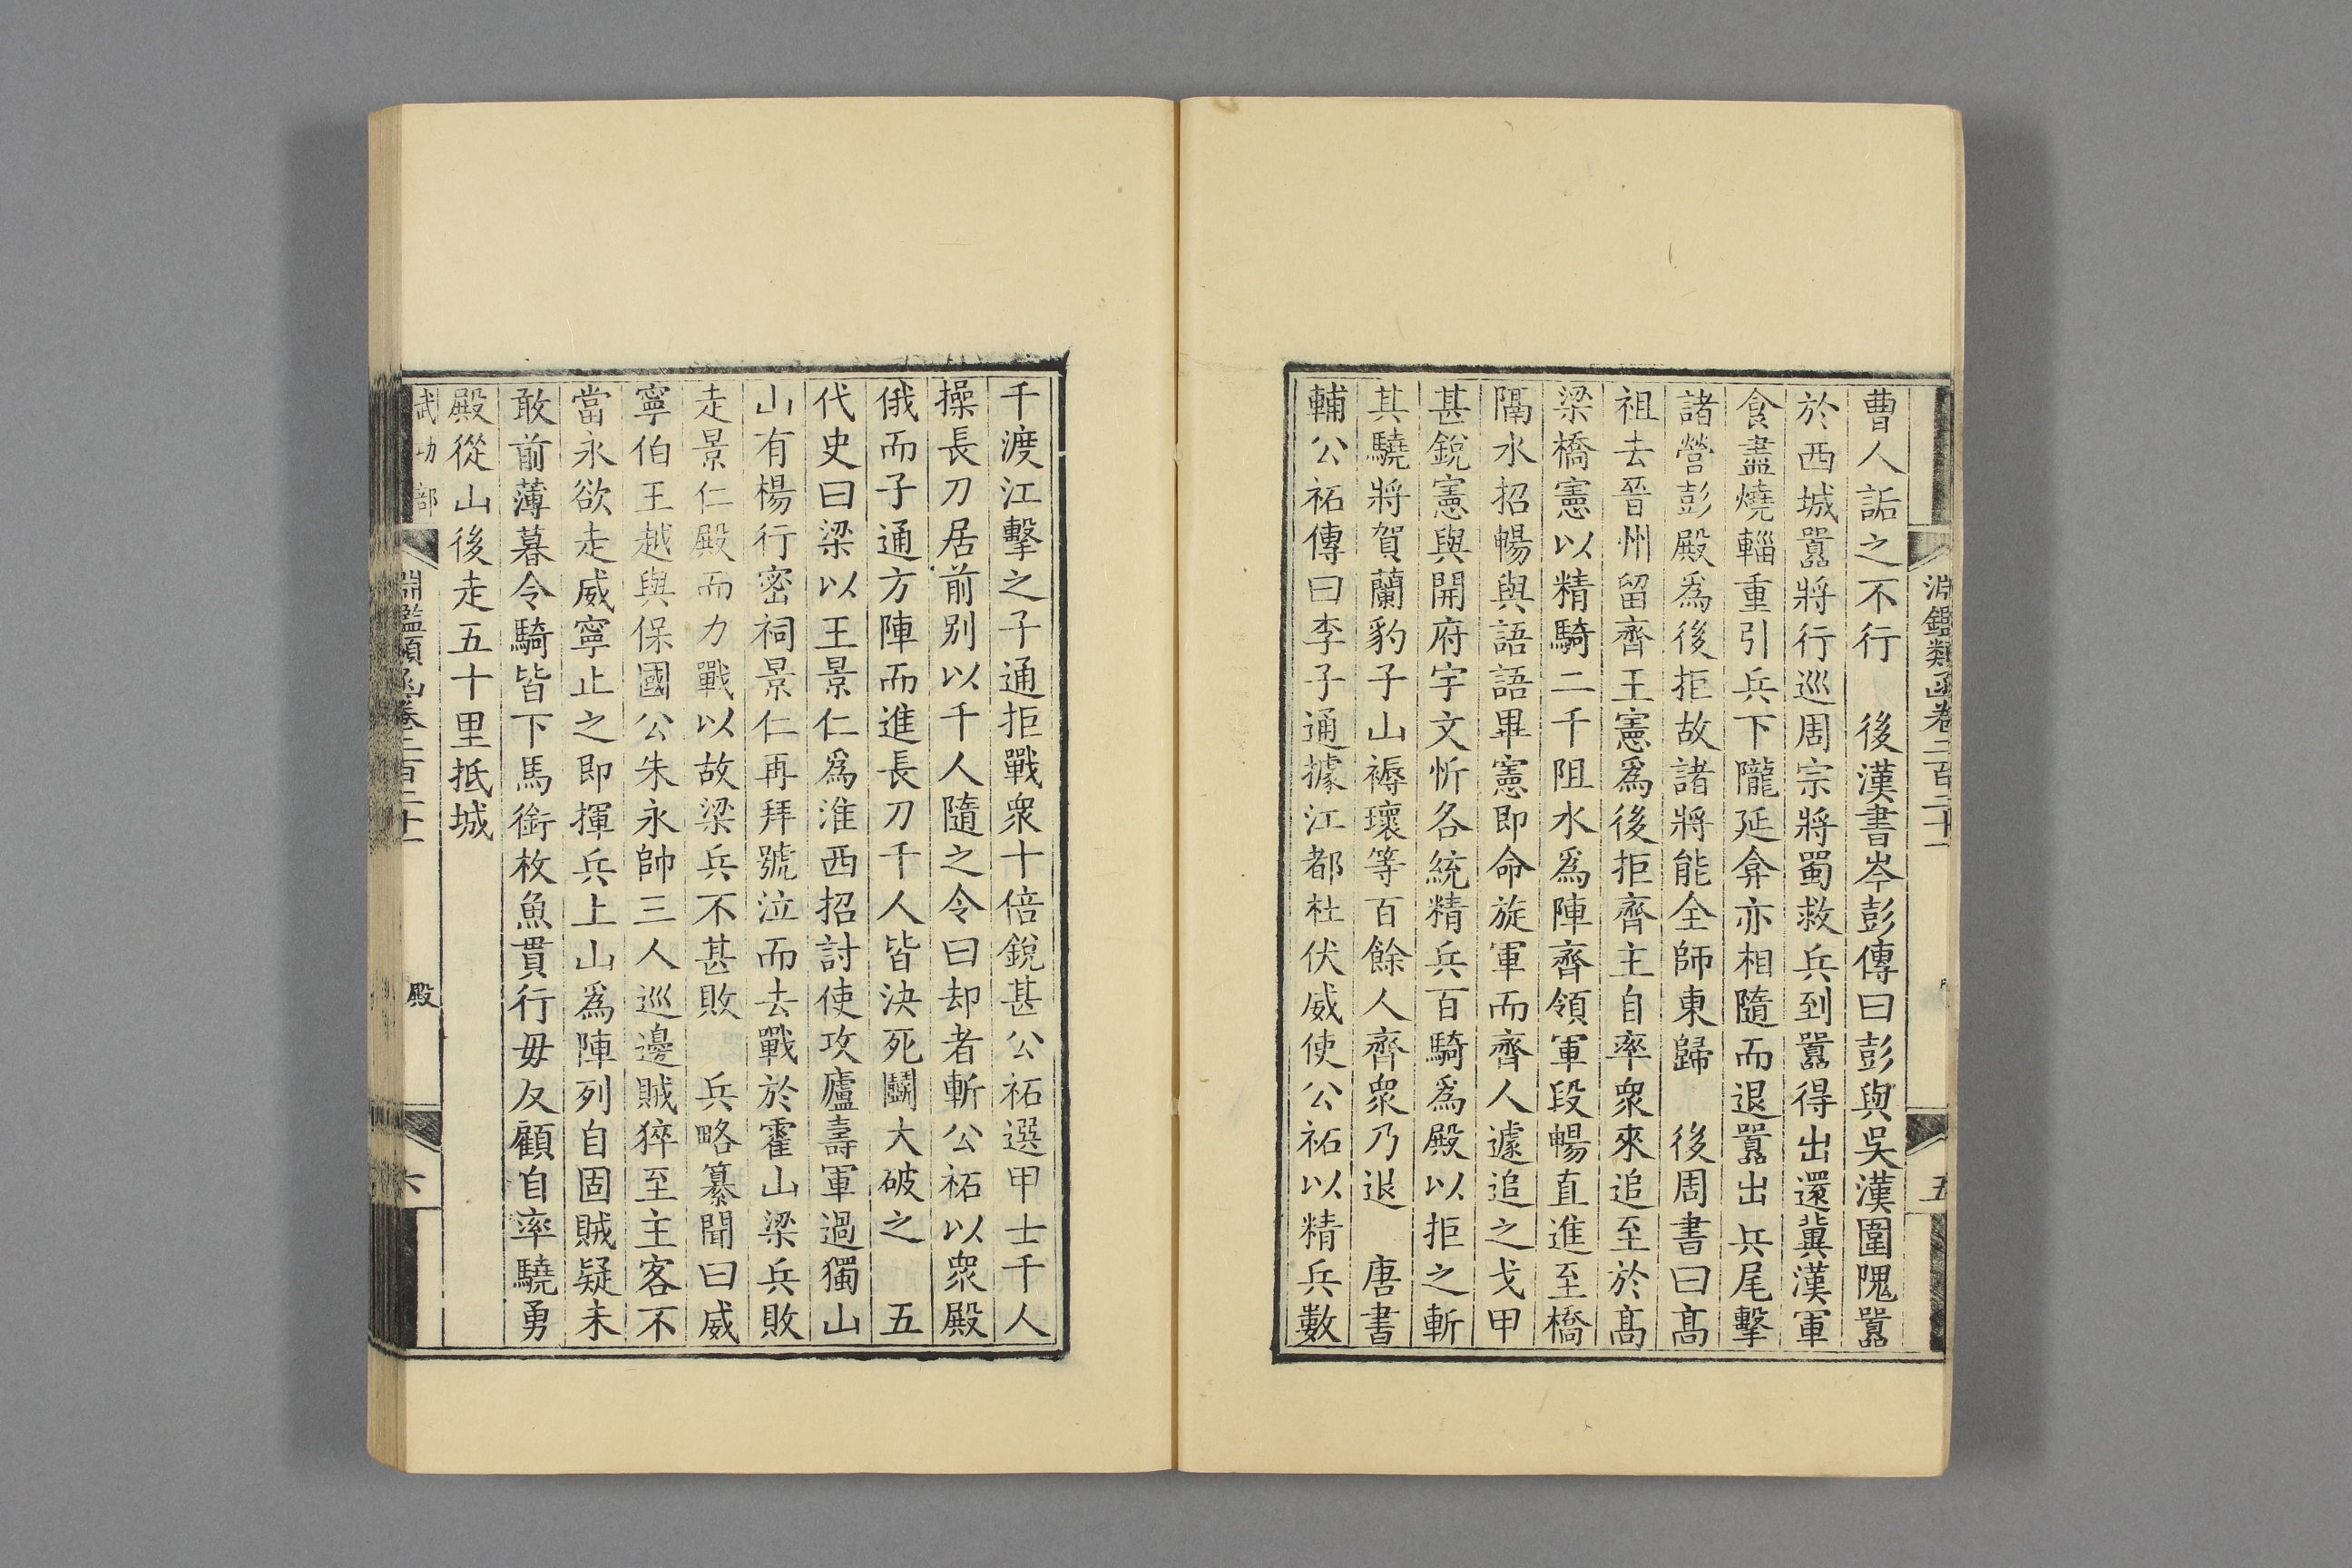 淵鑑類函卷二百二十一
五
曹人詬之不行　後漢書岑彭傳曰彭與吳漢圍隗囂
於西城囂將行巡周宗將蜀救兵到囂得出還冀漢軍
食盡燒輜重引兵下隴延弇亦相隨而退囂出兵尾擊
諸營彭殿爲後拒故諸將能全師東歸　後周書曰髙
祖去晉州留齊王憲爲後拒齊主自率衆來追至於髙
梁橋憲以精騎二千阻水爲陣齊領軍段暢直進至橋
隔水招暢與語語畢憲即命旋軍而齊人遽追之戈甲
甚銳憲與開府宇文忻各統精兵百騎爲殿以拒之斬
其驍將賀蘭豹子山褥瓌等百餘人齊衆乃退　唐書
輔公祏傳曰李子通據江都杜伏威使公祏以精兵數
千渡江擊之子通拒戰衆十倍銳甚公祏選甲士千人
操長刀居前別以千人隨之令曰却者斬公祏以衆殿
俄而子通方陣而進長刀千人皆決死鬭大破之　五
代史曰梁以王景仁爲淮西招討使攻廬壽軍過獨山
山有楊行密祠景仁再拜號泣而去戰於霍山梁兵敗
走景仁殿而力戰以故梁兵不甚敗　兵略纂聞曰威
寧伯王越與保國公朱永帥三人巡邊賊猝至主客不
當永欲走威寧止之即揮兵上山爲陣列自固賊疑未
敢前薄暮令騎皆下馬銜枚魚貫行毋反顧自率驍勇
殿從山後走五十里抵城
武功部
淵鑑類函卷二百二十一
殿
六